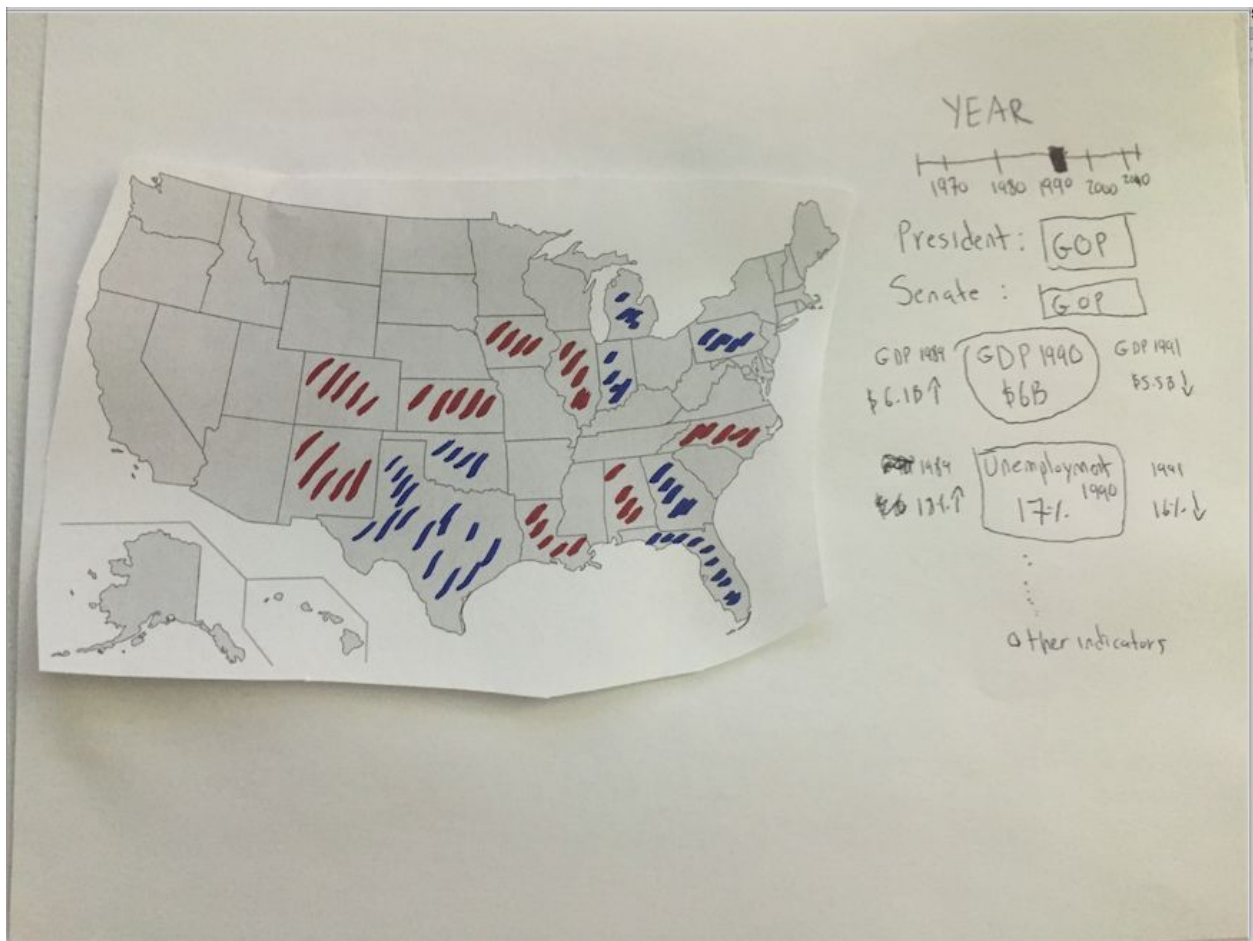 YEAR
1970 1980 1990 2000 2010
President: GOP
Senate : GOP
GDP 1989 GDP 1990 GDP 1991
$6.1B↑ $6B $5.5B↓
1989 Unemployment 1990 1991
17% 16%↓
Other indicators